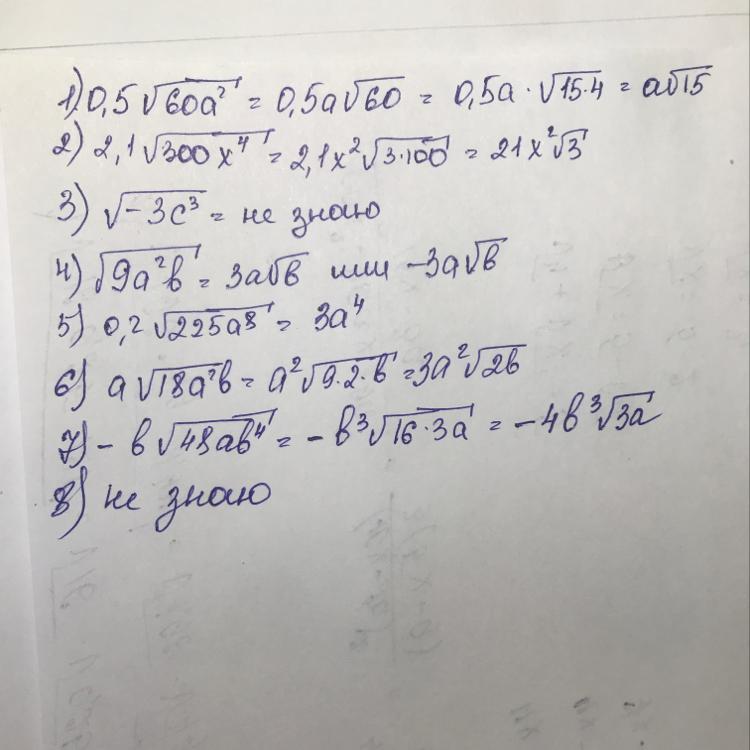 1) 0,5√60a² = 0,5a√60 = 0,5a·√15·4 = a√15
2) 2,1√300x⁴ = 2,1x²√3·100 = 21x²√3
3) √-3c³ = не знаю
4) √9a²b = 3a√b или -3a√b
5) 0,2√225a⁸ = 3a⁴
6) a√18a²b = a²√9·2·b = 3a²√2b
7) - b√48ab⁴ = - b³√16·3a = -4b³√3a
8) не знаю